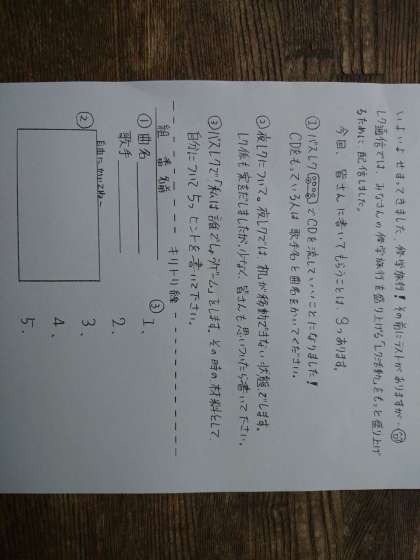 いよいよせまってきました、修学旅行！その前にテストがありますが…
レク通信では、みなさんの修学旅行を盛り上げる「レク活動」をもっと盛り上げ
るために配信しました。
今回、皆さんに書いてもらうことは、3つあります。
① バスレク でCDを流していいことになりました！
CDをもっている人は歌手名と曲名をかいてください。
② 夜レクについて。夜レクでは、机が移動できない状態でします。
レク係も案をだしましたが、少なく、皆さんも思いついたら書いて下さい。
③ バスレクで「私は誰でしょうゲーム」をします。その時の材料として
自分について5つヒントを書いて下さい。
キリトリ線
組 番 名前
① 曲名
歌手
②
自由にかいてね〜
③
1、
2、
3、
4、
5、